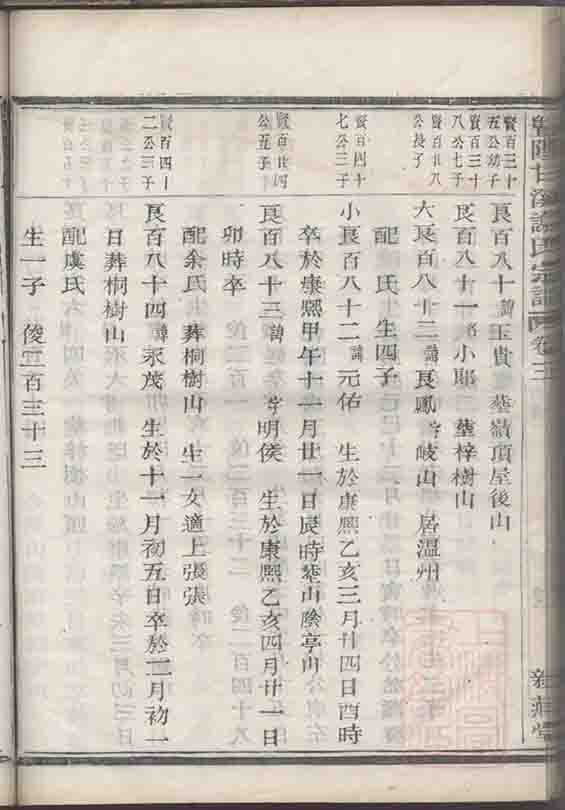 溪 氏宗譜 卷三
賢百三十
五公幼子
良百八十諱玉貴 塟嶺頂屋後山
賢百三十
八公七子
良百八十一名小郎 塟梓樹山
賢百廿八
公長子
大良百八十二諱良鳳字岐山 居溫州
配 氏 生四子
賢百四十
七公三子
小良百八十二諱元佑 生於康熙乙亥三月廿四日酉時
卒於康熙甲午十一月廿一日辰時塟山陰亭山
賢百廿四
公五子
良百八十三諱 字明侯 生於康熙乙亥四月廿一日
卯時卒
配余氏 葬桐樹山 生一女適上張張
賢百四十
二公三子
良百八十四諱永茂 生於十一月初五日卒於二月初一
日葬桐樹山
配虞氏
生一子 俊二百三十三